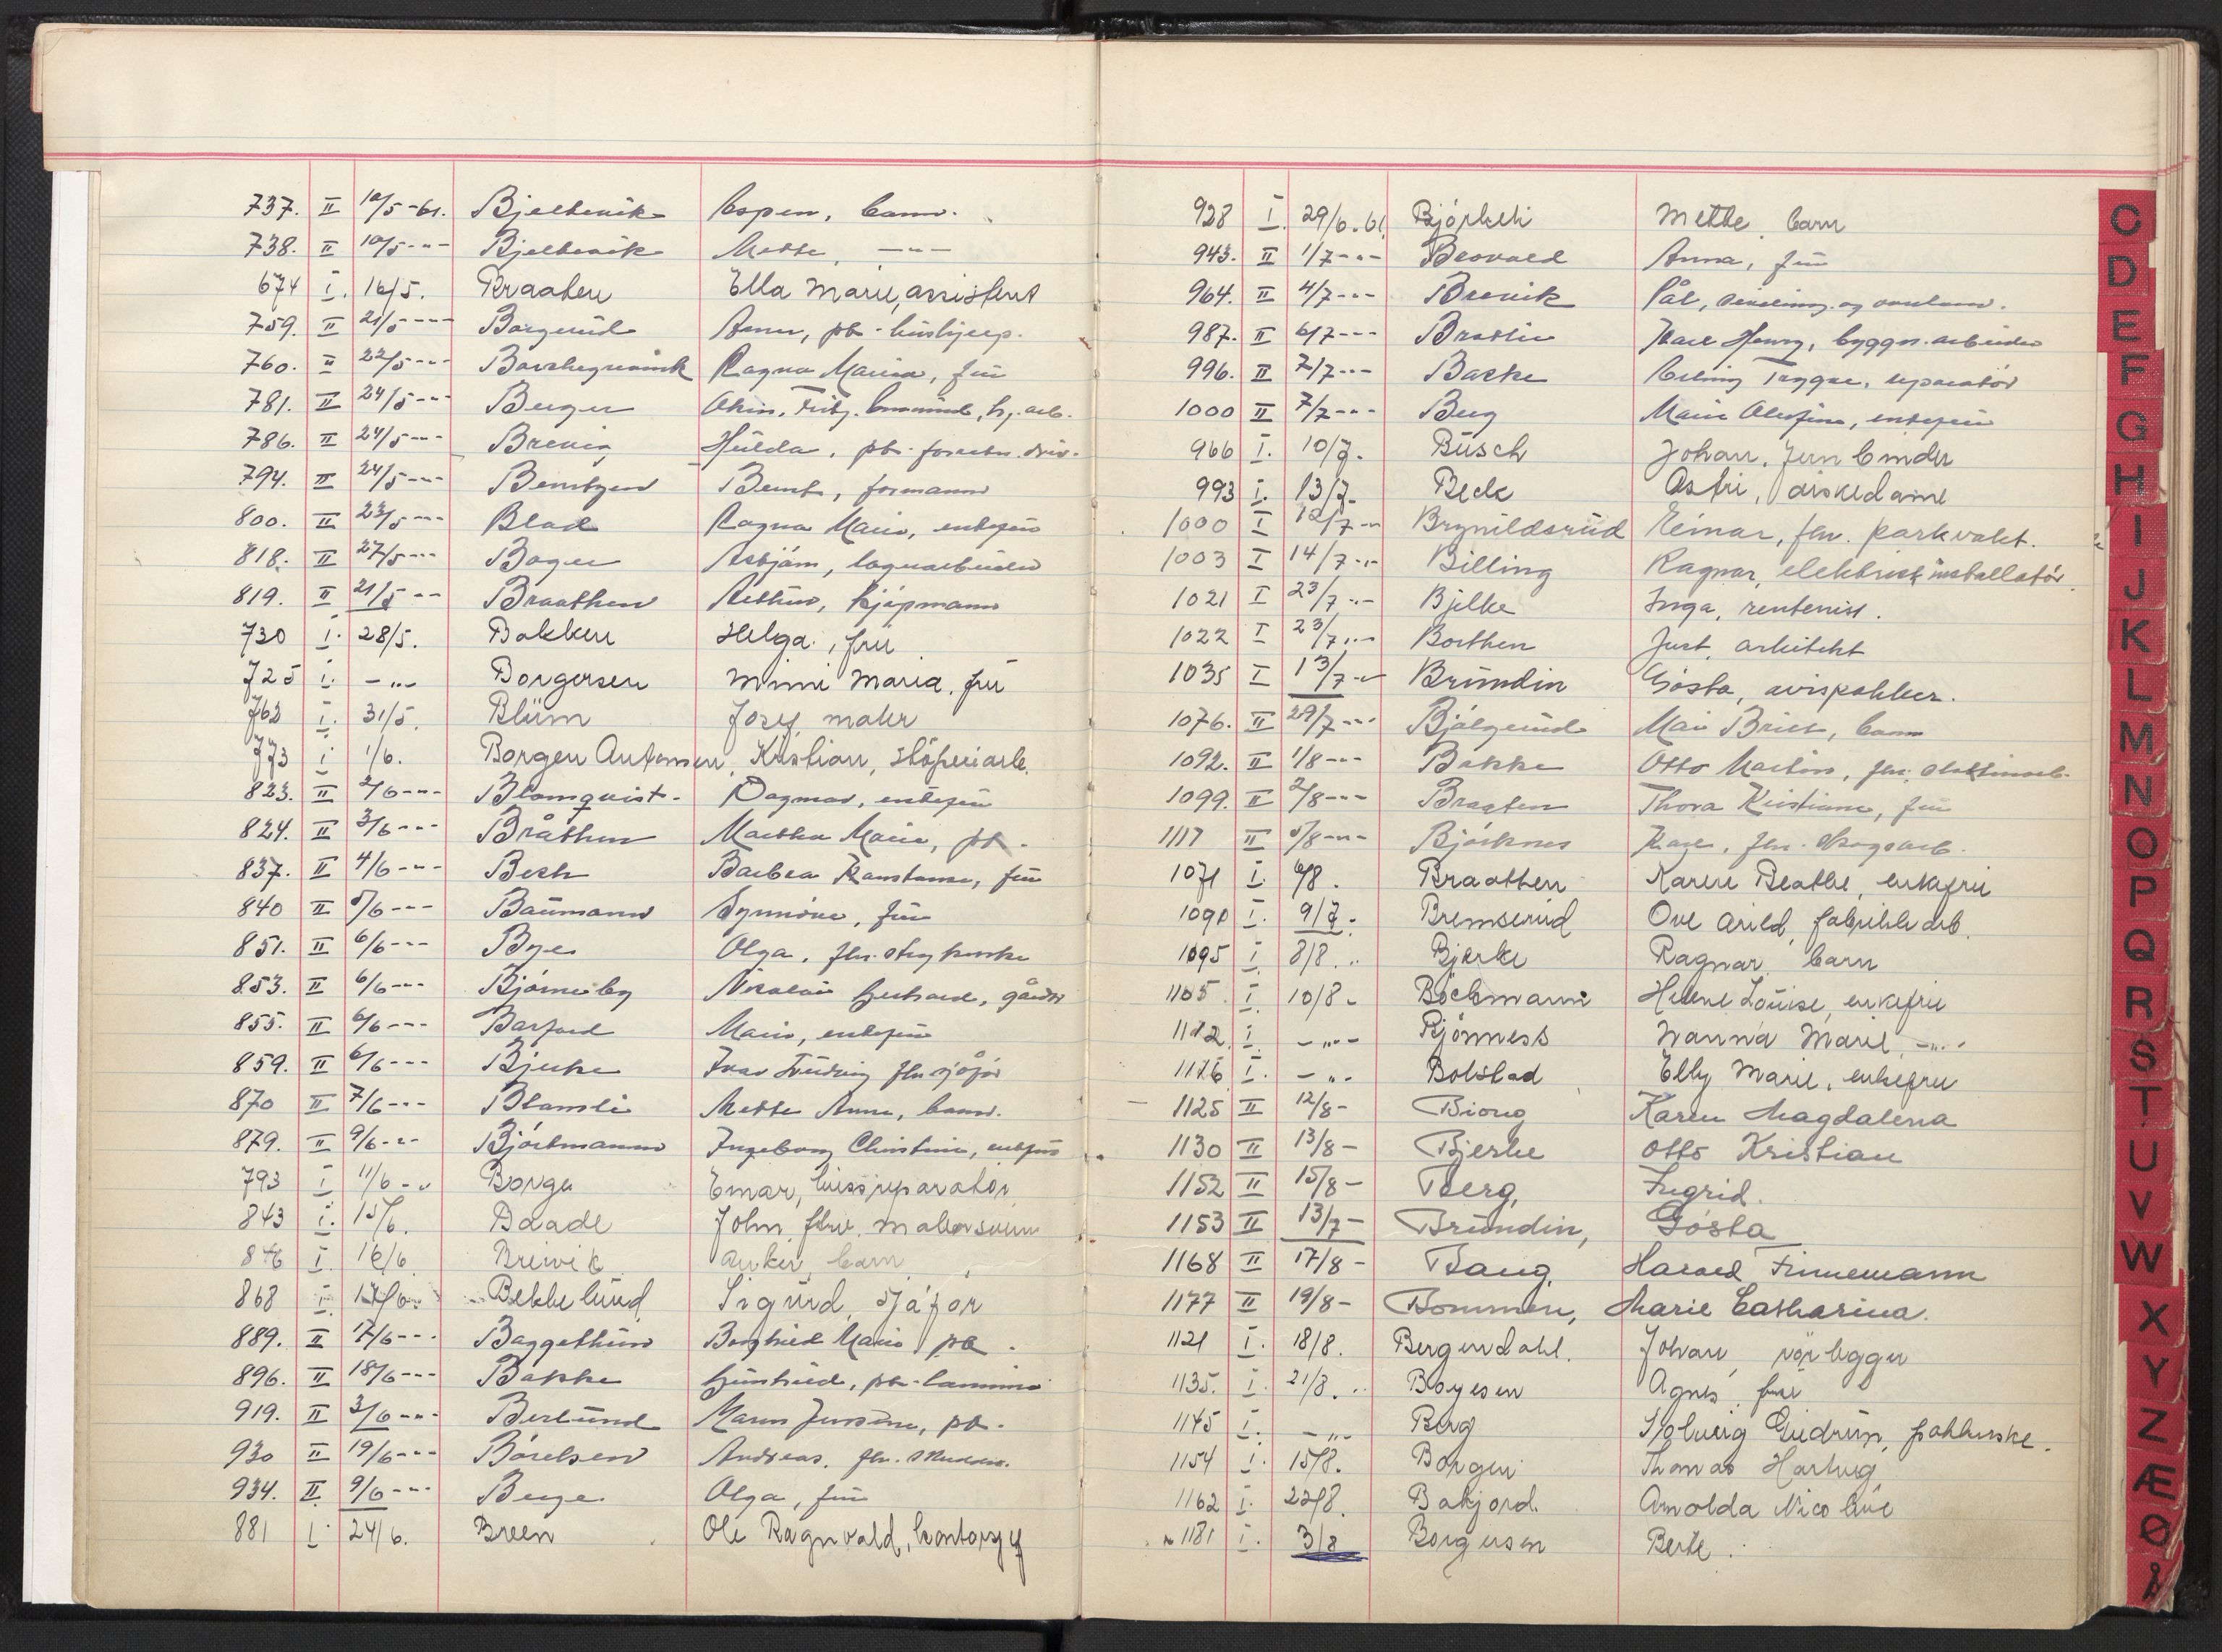 737. II 10/5-61. Bjelbenik Espen, barn.
738. II 10/5-"- Bjelbenik Mette, -"-
674 I. 16/5. Kraaken Ella Marie, assistent
759. II 21/5-"- Borgerud Anna, pb.-
760. II 22/5-"- Ragna Maria, frü
781. II 24/5-"- Berger
786. II 24/5-"- Brevig Hülda, pb.
794. II 24/5-"- Berntzen Bernt, formann
800. II 23/5-"- Blad Ragna Marie, enkefrü
818. II 27/5-"- Bager Asbjörn, lagerarbeider
819. II 21/5-"- Braathen Arthur, kjöpmann
730 I. 28/5. Bakken Helga, früe
725 I. -"- Borgersen Mimi Maria, frü
763 I. 31/5. Blüm Josef, maler
773 I 1/6. Borgen Antonsen, Kristian, stöperiarb.
823. II 2/6-"- Blomquist. Dagmar, enkefrü
824. II 3/6-"- Bråthen Martha Marie, pb.
837. II 4/6-"- Bech Barbra Konstanse, frü
840 II 5/6-"- Baümann Synnöve, frü
851. II 6/6-"- Bye Olga, fhv.
853. II 6/6-"- Björneby Nicolai Gerhard, gårdbr
855. II 6/6-"- Barfoed Marie, enkefrü
859. II 6/6-"- Bjerke Ivar fhv. sjåfør
870 II 7/6-"- Blamli Mette Anne, barn.
879. II 9/6-"- Björtmann Ingeborg Christine, enkefrü
793 I 11/6-" Borge Einar,
843 I. 15/6. Baade John, fhv. malersvenn
846 I. 16/6 Breivik Anker, barn
868 I. Bekkelünd Sigürd, sjåför
889. II 17/6-"- Baggethün Borghild Marie pb.
896. II 18/6-"- Bakke Günhild, pb.
919. II 3/6-"- Berlünd Maren Jensine, pb.
930 II 19/6-"- Bårdsen Andreas, fhv.
934. II 9/6-"- Berge Olga, frü
881 I. 24/6. Breen Ole Ragnvald, kontorsj
928 I. 29/6.61. Björkeli Mette barn
943. II 1/7-"- Brovold Anna, frü
964. II 4/7-"- Brevik Pål,
987. II 6/7-"- Bratlie Karl Henry, byggn.arbeider
996. II 7/7-"- Bakke Erling Trygve, reparatör
1000 II 7/7-"- Berg Marie Olufine, enkefrü
966 I. 10/7. Büsch Johan, Jernbinder
993 I. 13/7. Beck Astri, diskedame
1000 I 12/7-" Brynildsrüd Einar, fhv. parkvakt.
1003 I 14/7-" Billing Ragnar, elektrisk installatör.
1021 I 23/7-" Bjelke Inga, rentenist.
1022 I 23/7-" Borthen Just, arkitekt
1035 I 13/7-" Bründin Gösta, avispakker.
1076. II 29/7-"- Bjålgerud Mai Britt, barn
1092. II 1/8-"- Bakke Otto Martin, fhv.
1099. II 2/8-"- Braaten Thora Kristiane, frü
1117 II 5/8-"- Björknes Kare, fhv. skogsarb.
1071 I. 6/8. Braathen Karen Beathe, enkefrü
1090 I. 9/7. Bremserüd Ove Arild, fabrikkarb.
1095 I. 8/8." Bjerke Ragnar barn
1105. I. 10/8. Bockmann Helene Loüise, enkefrü
1112. I. -"- Bjönness Wanna Marie, -"-
1116 I. -"- Bolstad Elly Marie, enkefrü
1125 II 12/8- Biong Karen Magdalena
1130 II 13/8- Bjerke Otto Kristian
1152 II 15/8- Berg, Ingrid.
1153 II 13/7- Bründin, Gösta
1168 II 17/8- Bang, Harald Finnemann
1177 II 19/8- Bommen, Marie Catharina.
1121 I. 18/8. Bergendahl. Johan, rørlegger
1135. I. 21/8." Boyesen Agnes, frü
1145 I. -"- Berg Solveig Güdrün, pakkerske.
1154 I. 15/8. Borgen Thomas Hartvig
1162 I. 22/8. Bakjord. Arnolda Nicoline
1181 I. 3/8 Borgersen Berte.
C
D
E
F
G
H
I
J
K
L
M
N
O
P
Q
R
S
T
U
V
W
X
Y
Z
Æ
Ø
Å